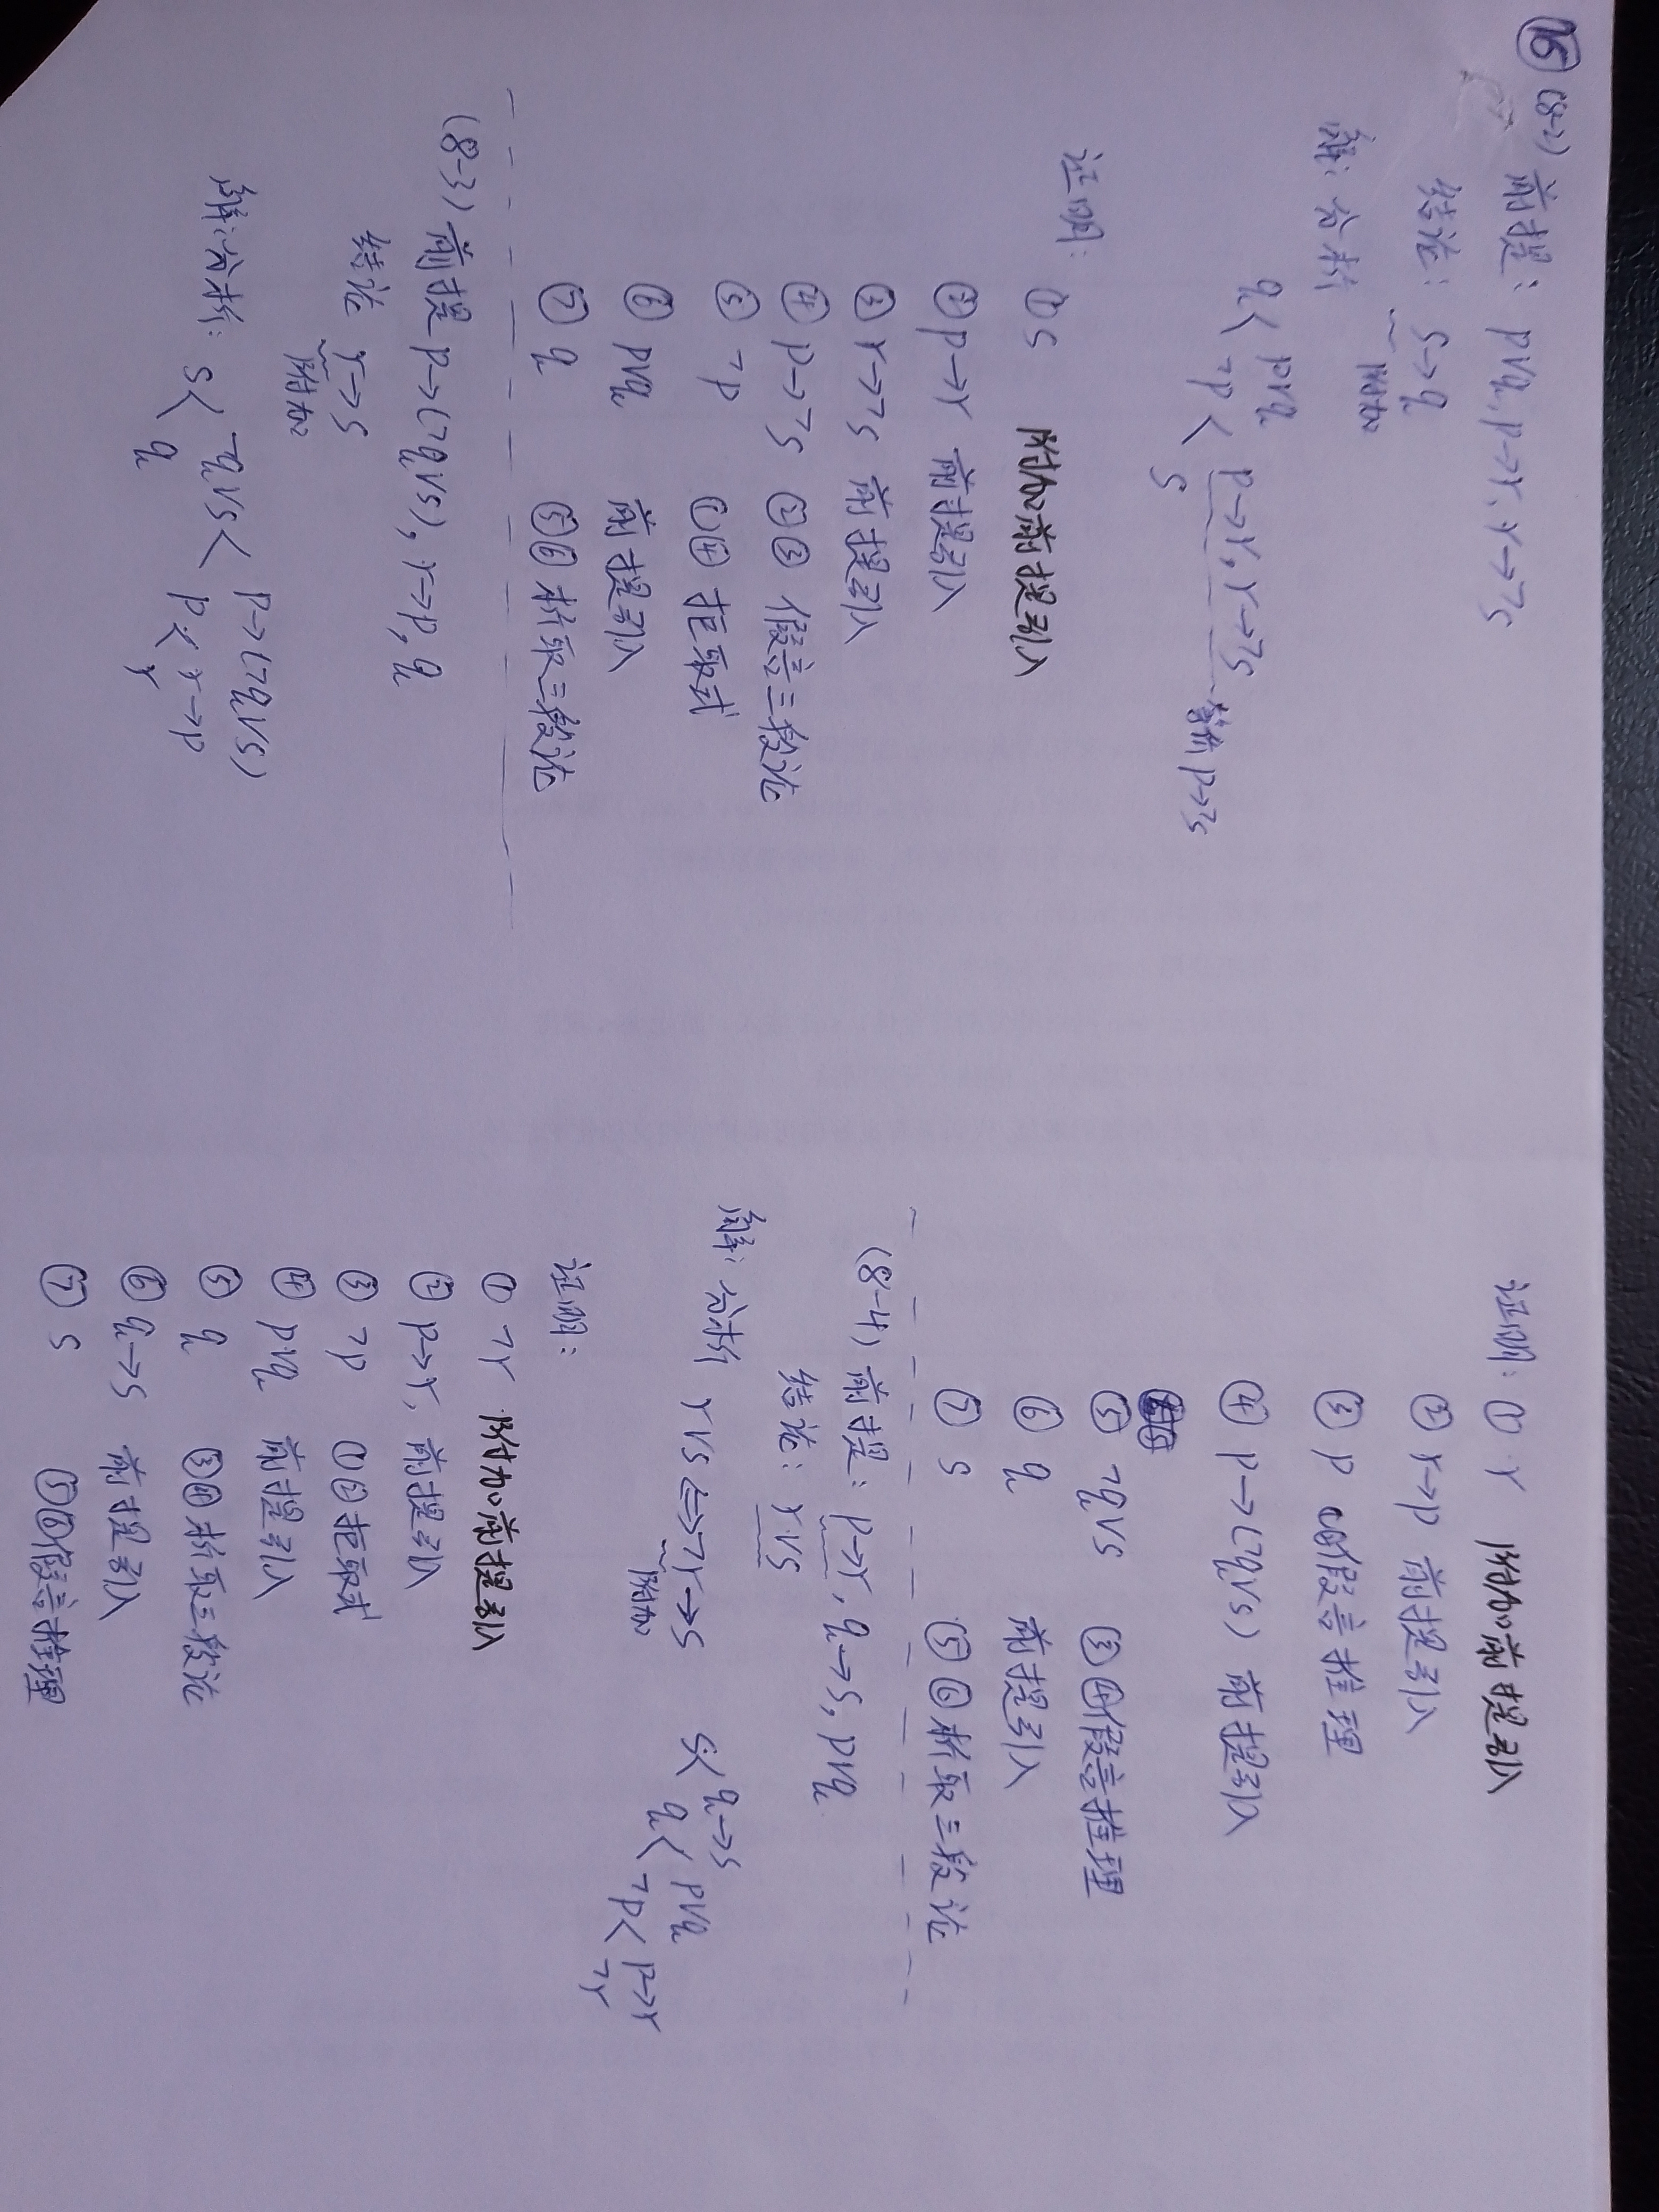 ⑯ (8-2) 前提: p∨q, p→r, r→¬s
结论: s→q
附加
解: 分析
q< p∨q
¬p< p→r, r→¬s 等价 p→¬s
s
证明:
① s 附加前提引入
② p→r 前提引入
③ r→¬s 前提引入
④ p→¬s ②③ 假言三段论
⑤ ¬p ①④ 拒取式
⑥ p∨q 前提引入
⑦ q ⑤⑥ 析取三段论
(8-3) 前提 p→(¬q∨s), r→p, q
结论 r→s
附加
解: 分析: s< ¬q∨s< p→(¬q∨s)
p< r→p
q r
证明: ① r 附加前提引入
② r→p 前提引入
③ p ①②假言推理
④ p→(¬q∨s) 前提引入
⑤ ¬q∨s ③④假言推理
⑥ q 前提引入
⑦ s ⑤⑥析取三段论
(8-4) 前提: p→r, q→s, p∨q
结论: r∨s
解: 分析 r∨s⇔¬r→s s< q→s
附加 q< p∨q
¬p< p→r
¬r
证明:
① ¬r 附加前提引入
② p→r, 前提引入
③ ¬p ①②拒取式
④ p∨q 前提引入
⑤ q ③④析取三段论
⑥ q→s 前提引入
⑦ s ⑤⑥假言推理